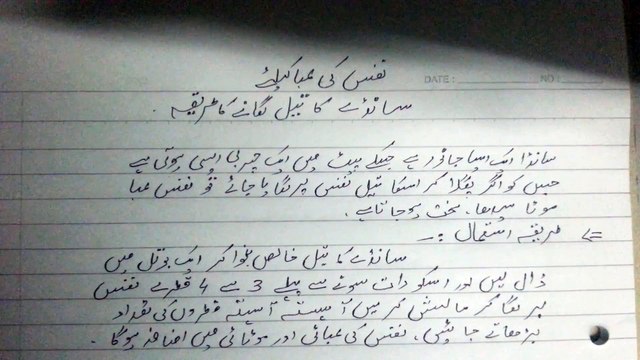 نفس کی لمبائی کیلئے
DATE: NO:
سانڈے کا تیل لگانے کا طریقہ۔
سانڈا ایک ایسا جانور ہے جسکے پیٹ میں ایک چربی ایسی ہوتی ہے
جس کو اگر پگلا کر اسکا تیل نفس پر لگایا جائے تو نفس لمبا
موٹا سیدھا، سخت ہو جاتا ہے۔
طریقہ استعمال :-
سانڈے کا تیل خالص نکلوا کر ایک بوتل میں
ڈال لیں اور اسکو رات سونے سے پہلے 3 سے 4 قطرے نفس
پر لگا کر مالیش کریں آہستہ آہستہ قطروں کی تعداد
بڑھاتے جائیں، نفس کی لمبائی اور موٹائی میں اضافہ ہوگا۔